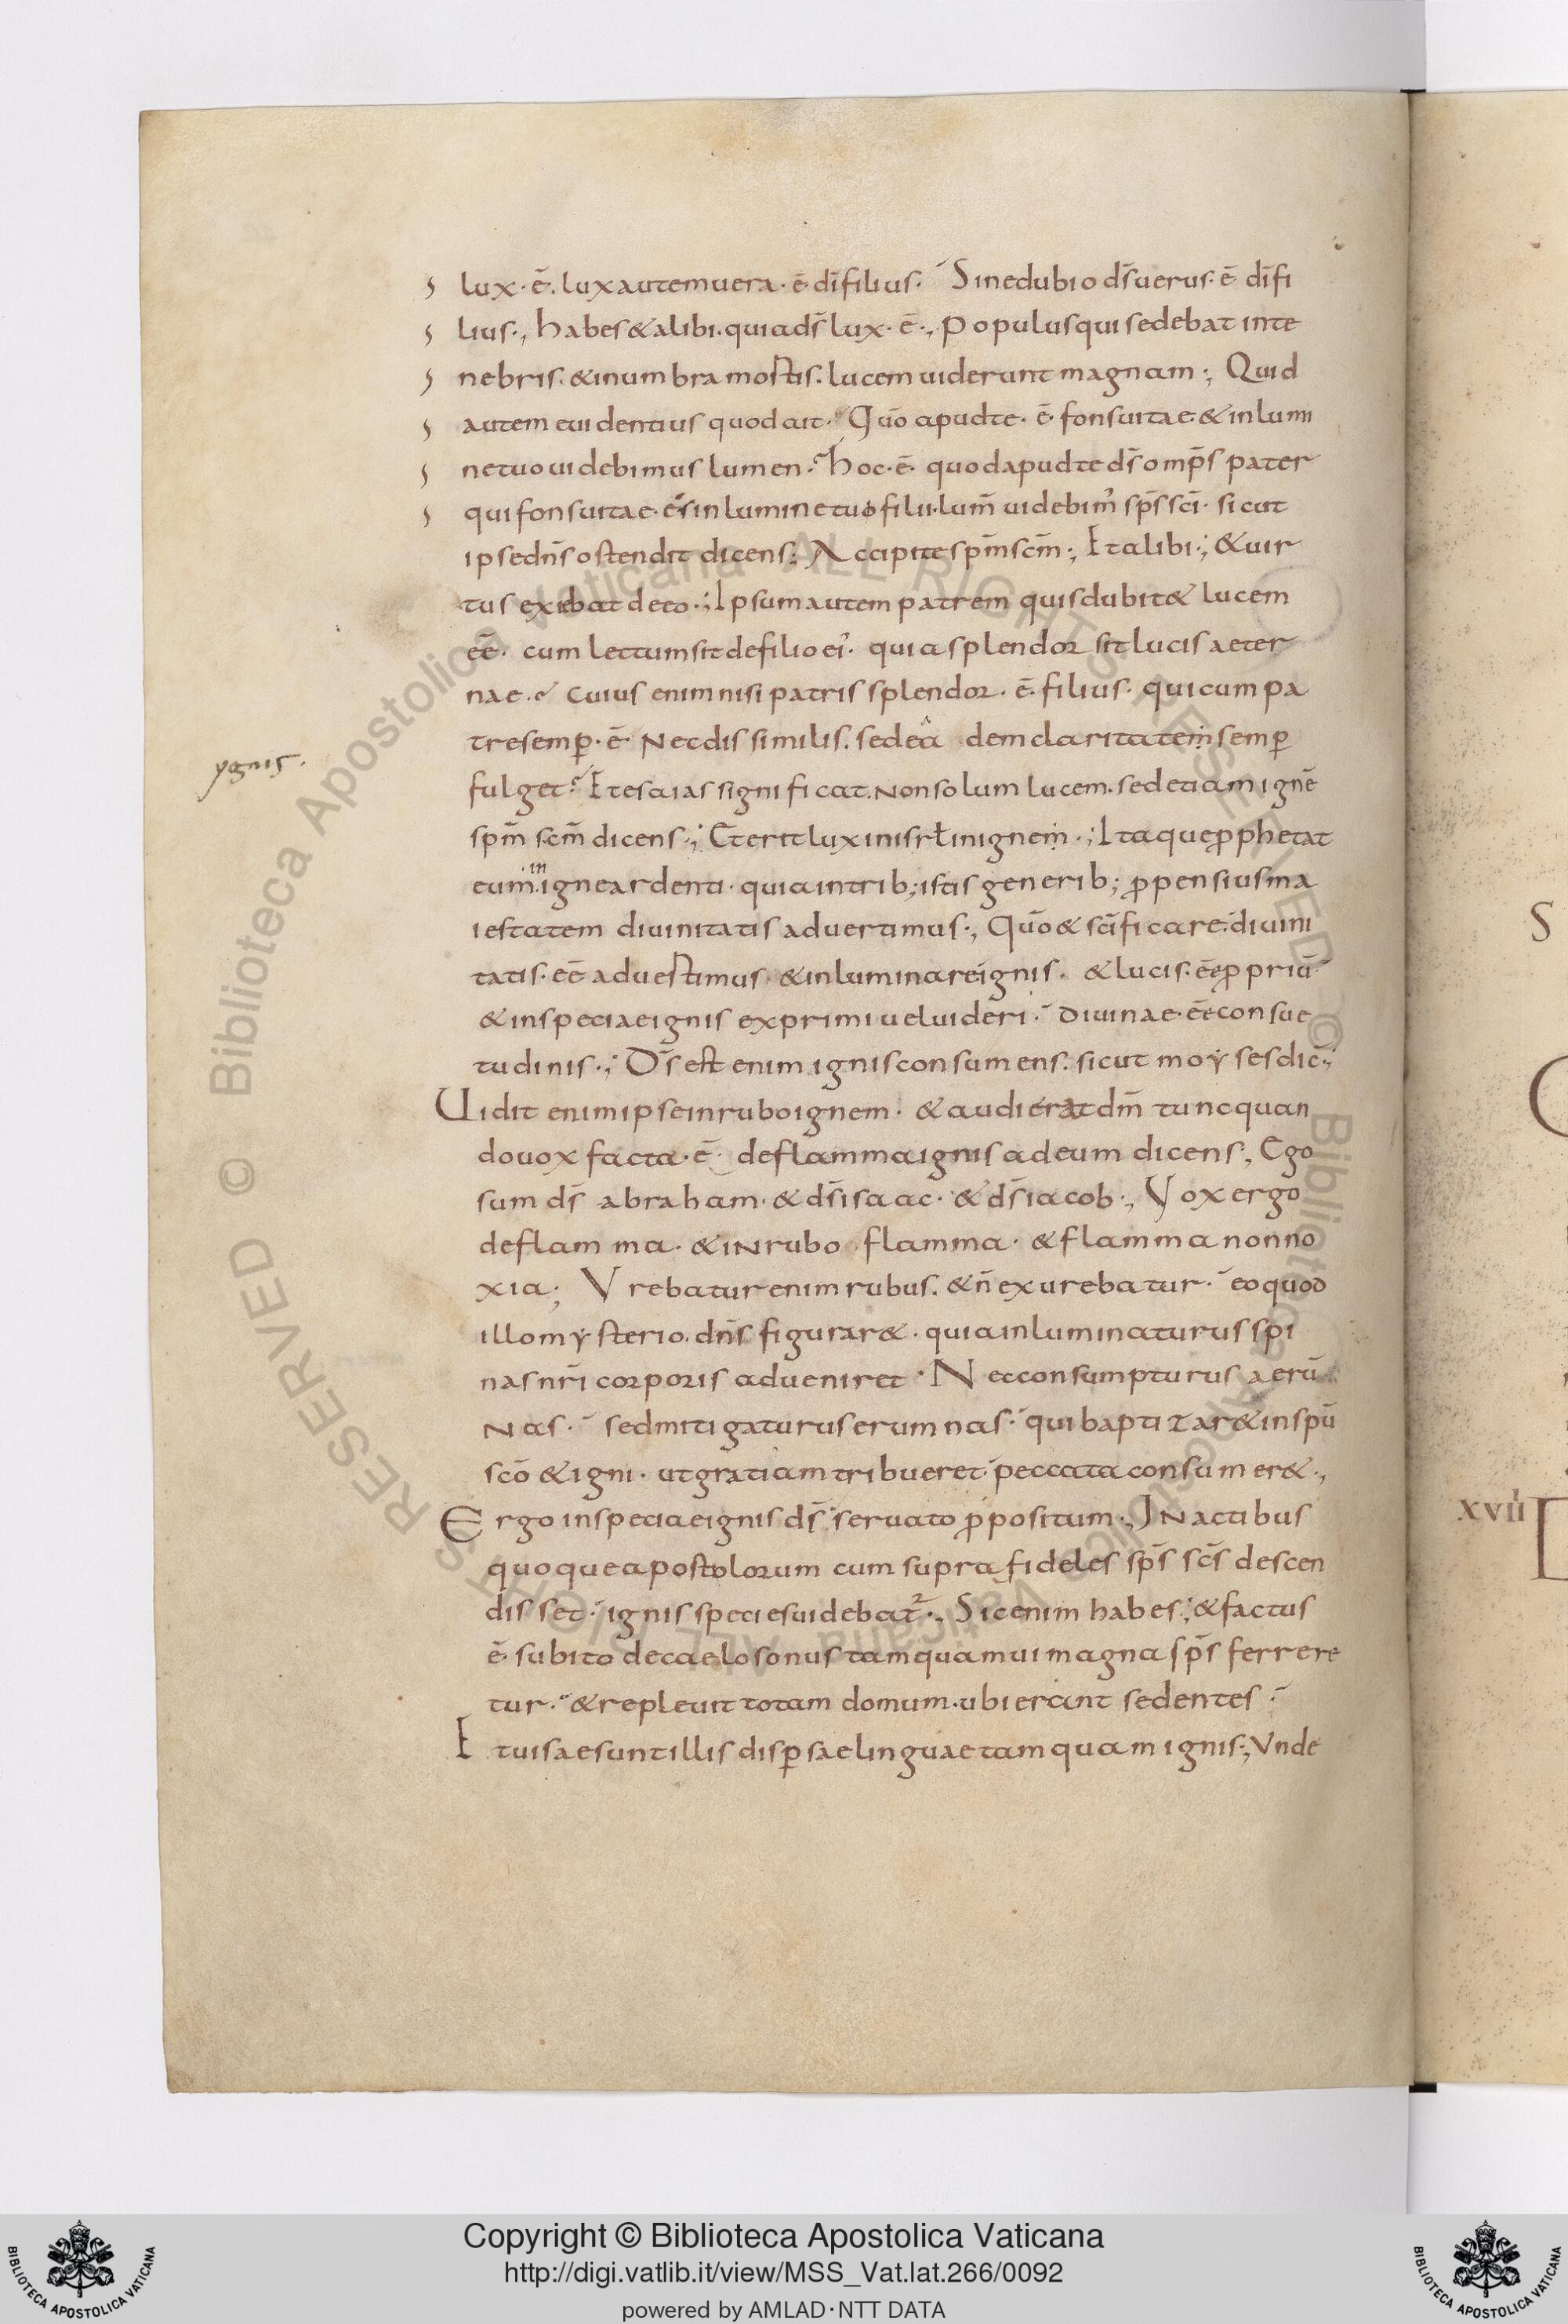 lux· ē. lux autem uera· ē dī filius·  Sine dubio dš uerus· ē dī fi
lius·, habes & alibi· quia dš lux· ē·, Populus qui sedebat in te
nebris· & in umbra mortis· lucem uiderunt magnam·, Quid
autem euidentius quod ait· Quō apud te· ē fons uitae· & in lumi
ne tuo uidebimus lumen· hoc· ē· quod apud te dš omp̄s pater
qui fons uitae· és in lumine tuo filii· lum̄ uidebim' sp̄s sc̄i· sicut
ipse dn̄s ostendit dicens·, Accipite sp̄m sc̄m·, Et alibi·; & uir
tus exiebat de eo·; Ipsum autem patrem quis dubit& lucem
eē· cum lectum sit de filio ei'· quia splendor sit lucis aeter
nae· cuius enim nisi patris splendor· ē· filius· qui cum pa
tre semp̱· ē· Nec dissimilis· sed ea dem claritatem semp̱
fulget· Et esaias significat· non solum lucem· sed etiam ignē
sp̄m sc̄m dicens·; Et erit lux in isrł in ignem·; Itaque p̱phetat
ygnis·
eum in igne ardenti· quia in trib; istis generib; p̱pensius ma
iestatem diuinitatis aduertimus·, Quō & sc̄ificare· diuini
tatis· eē aduertimus· & inluminare ignis· & lucis· eē p̱priū
& in speciae ignis exprimi uel uideri· diuinae· eē consue
tudinis·; Dš est enim ignis consumens· sicut moyses dic̄·;
Uidit enim ipse in rubo ignem· & audierat dm̄ tunc quan
do uox facta· ē· de flamma ignis ad eum dicens, Ego
sum dš abraham· & dš isaac· & dš iacob·, Vox ergo
de flamma· & in rubo flamma· & flamma non no
xia·; Vrebatur enim rubus· & n̄ exurebatur· eo quod
illo mysterio· dn̄s figurar&· quia inluminaturus spi
nas nr̄i corporis adueniret· Nec consumpturus aerū
nas· sed mitigaturus erumnas· qui baptizar& in spū
scō & igni· ut gratiam tribueret· peccata consumer&·,
Ergo in speciae ignis dš seruato p̱positum·, In actibus
quoque apostolorum cum supra fideles sp̄s sc̄s descen
disset· ignis species uidebat²·, Sic enim habes·; & factus
ē· subito de caelo sonus tamquam ui magna sp̄s ferrere
tur· & repleuit totam domum· ubi erant sedentes·
Et uisae sunt illis disp̱sae linguae tamquam ignis·, Vnde
S
XVII
Copyright © Biblioteca Apostolica Vaticana
http://digi.vatlib.it/view/MSS_Vat.lat.266/0092
powered by AMLAD·NTT DATA
BIBLIOTECA APOSTOLICA VATICANA
BIBLIOTECA APOSTOLICA VATICANA